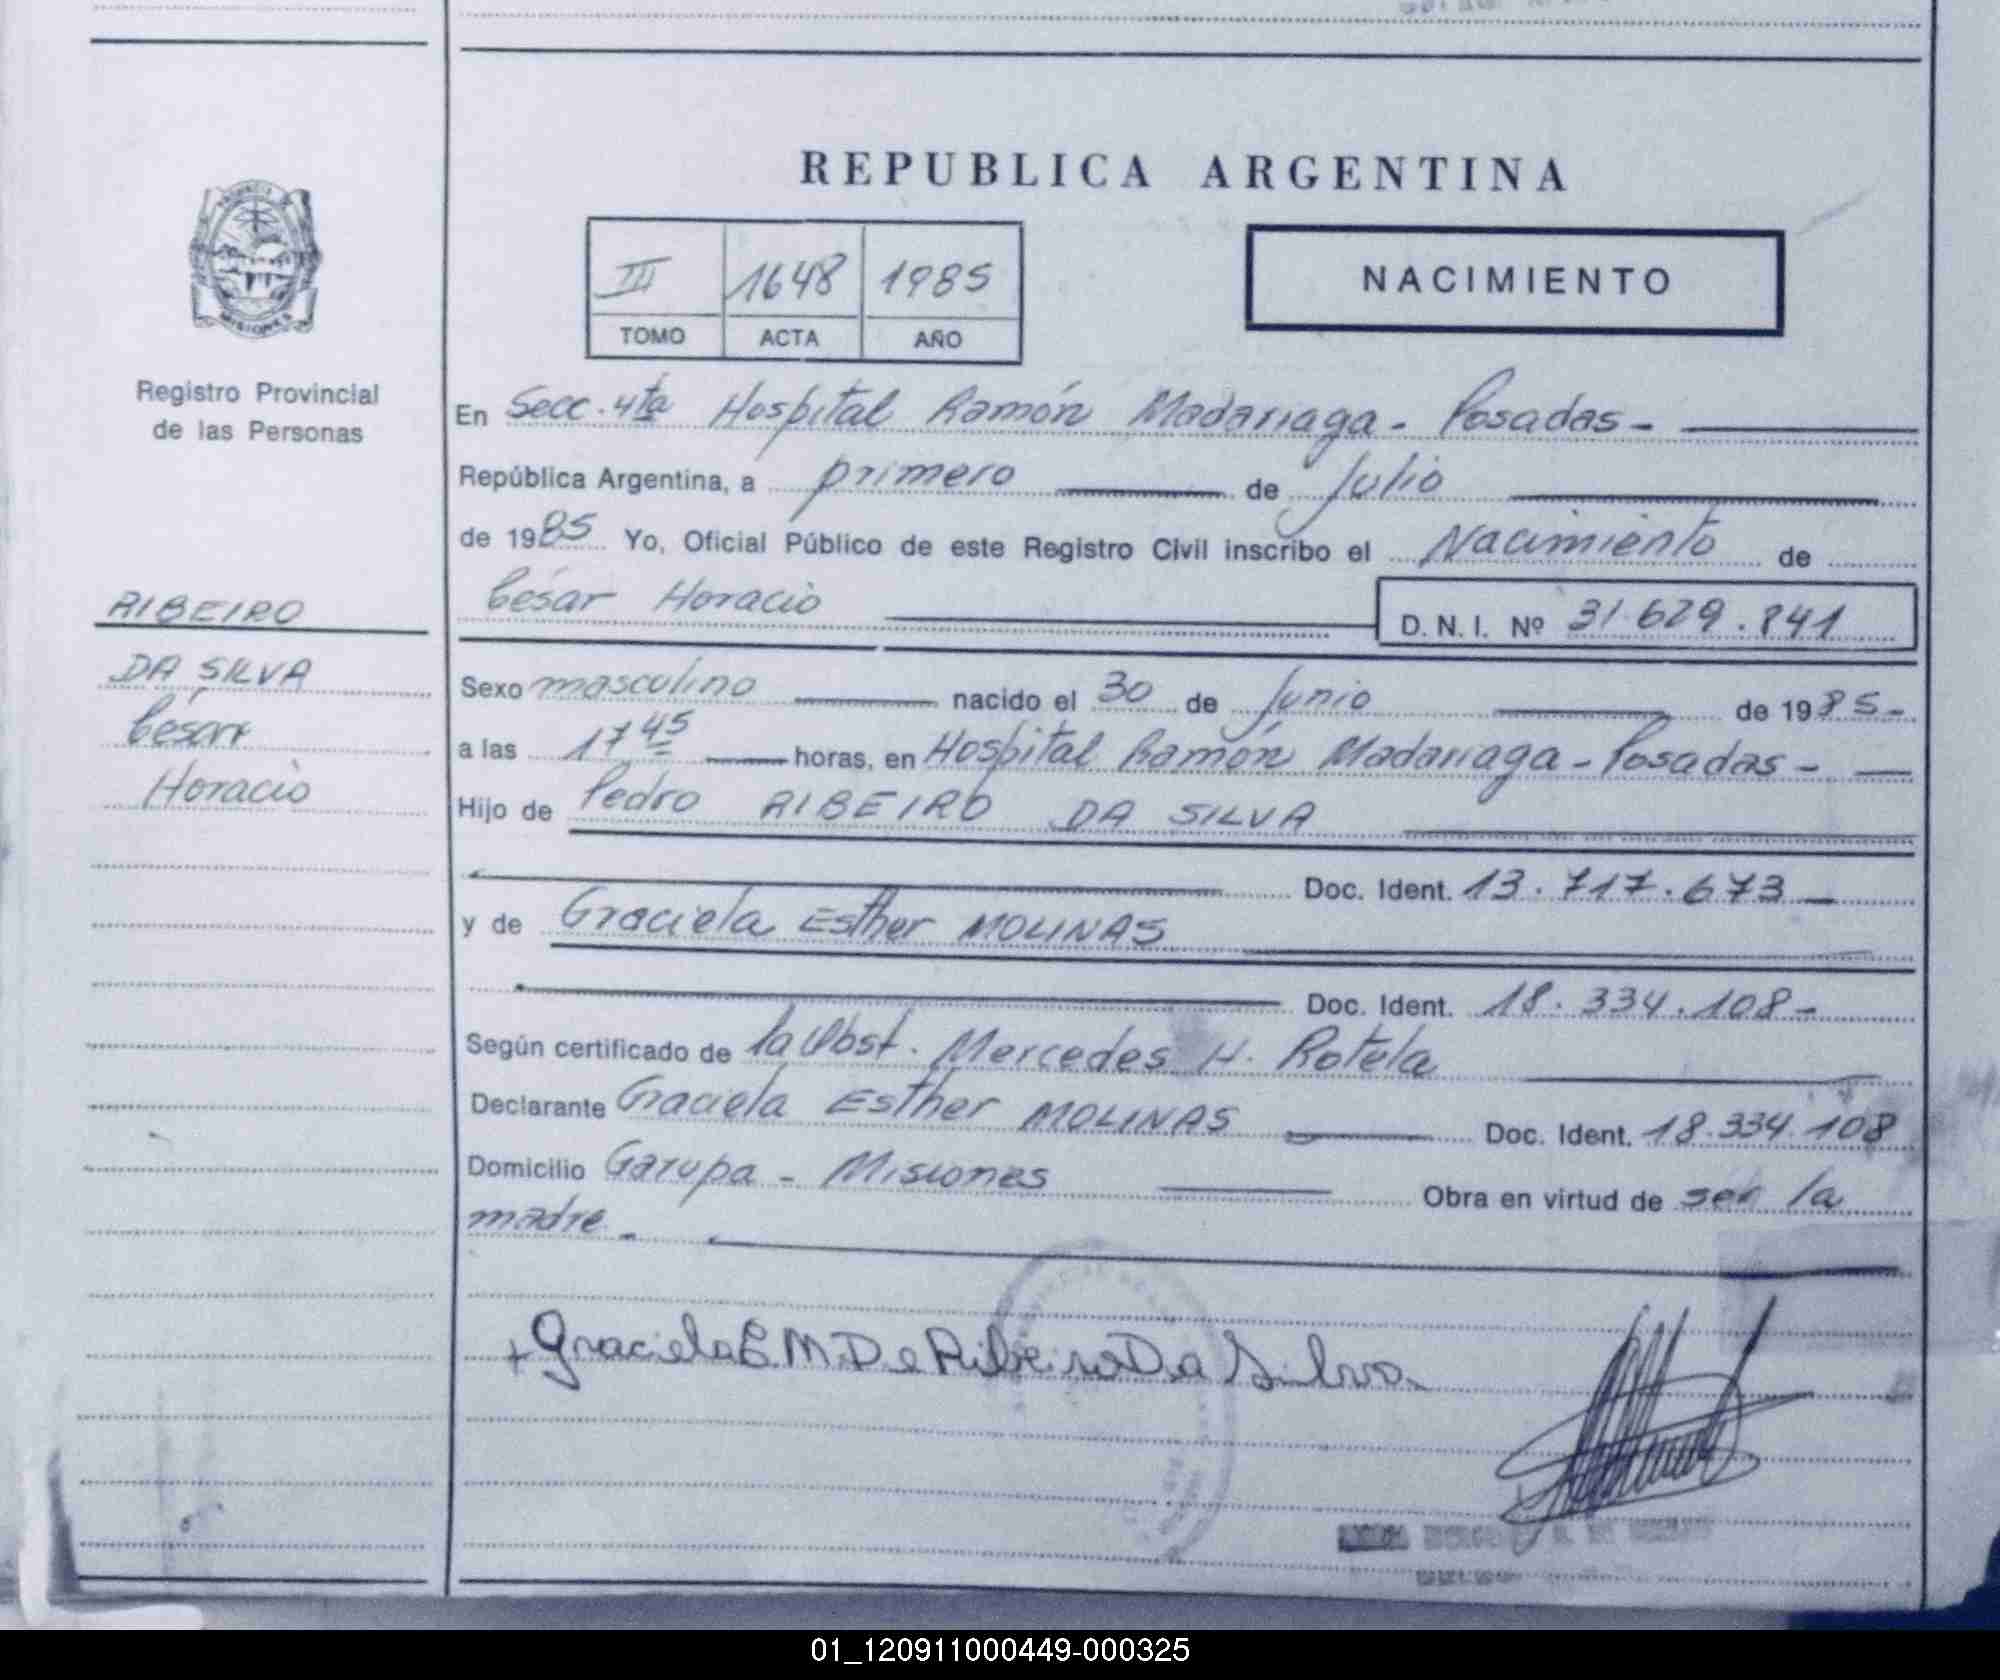 REPUBLICA ARGENTINA
III 1648 1985
TOMO ACTA AÑO
NACIMIENTO
MISIONES
Registro Provincial
de las Personas
RIBEIRO
DA SILVA
César
Horacio
En Secc. 4ta Hospital Ramón Madariaga - Posadas -
República Argentina, a primero de Julio
de 1985 Yo, Oficial Público de este Registro Civil inscribo el Nacimiento de
César Horacio D. N. I. Nº 31.629.841
Sexo masculino nacido el 30 de Junio de 1985 -
a las 17 45 horas, en Hospital Ramón Madariaga - Posadas -
Hijo de Pedro RIBEIRO DA SILVA
Doc. Ident. 13.717.673 -
y de Graciela Esther MOLINAS
Doc. Ident. 18.334.108 -
Según certificado de la Obst. Mercedes H. Rotela
Declarante Graciela Esther MOLINAS Doc. Ident. 18.334.108
Domicilio Garupa - Misiones Obra en virtud de ser la
madre -
+ Graciela E M De Ribeiro Da Silva
01_120911000449-000325